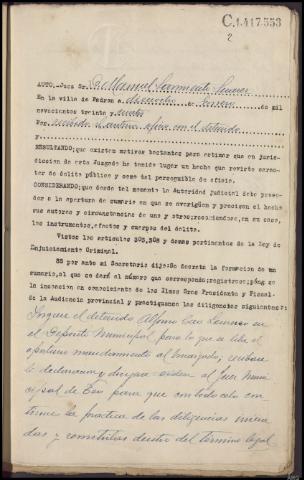 C.1.417.553
2
AUTO.-Juez Sr. D. Manuel
En la villa de Padron a dieciocho de de mil
novecientos treinta y cuatro
Por recibido el anterior oficio con el detenido
y
RESULTANDO; que existen motivos bastantes para estimar que en juris-
diccion de este Juzgado ha tenido lugar un hecho que reviste carac-
ter de delito público y como del perseguible de oficio.
CONSIDERANDO; que desde tal momento la Autoridad judicial debe proce-
der a la apertura de sumario en que se averigüen y precisen el hecho
sus autores y circunstancias de uno y otros; recogiendose, en su caso,
los instrumentos, efectos y cuerpos del delito.
Vistos los articulos 303, 308 y demas pertinentes de la Ley de
Enjuiciamiento Criminal.
SS por ante mi Secretario dijo: Se decreta la formacion de un
sumario, al que se dará el número que corresponda; registrese; póng
la incoacion en conocimiento de los Ilmos Sres Presidente y Fiscal
de la Audiencia provincial y practiquense las diligencias siguientes:
Ingrese el detenido Alfonso en
el Depósito Municipal para lo que se libre el
oportuno mandamiento al Encargado; recibase
le declaracion y dirijase orden al Juez Muni
cipal de para que con todo celo con
tinue la practica de las diligencias inicia
das y remitirlas dentro del termino legal